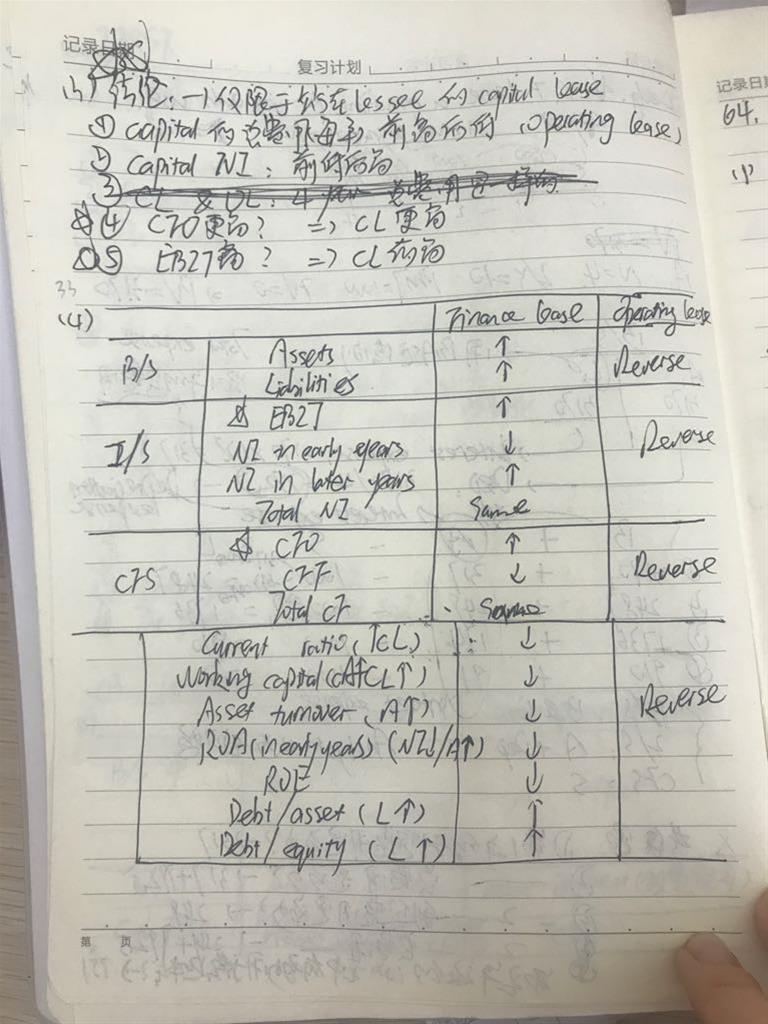 记录日期
复习计划
(3) 结论: → 仅限于站在 lessee 的 capital lease
① capital 的总费用每年 前高后低 (operating lease)
② capital NI: 前低后高
③ CL & OL: 4 year 总费用是一样的
☆④ CFO更高? => CL更高
⑤ EBIT高? => CL的高
33
(4) Finance lease Operating lease
B/S Assets ↑ Reverse
Liabilities ↑
☆ EBIT ↑
I/S NI in early years ↓ Reverse
NI in later years ↑
Total NI Same
☆ CFO ↑
CFS CFF ↓ Reverse
Total CF Same
Current ratio (↑CL) ↓
Working capital (CA↑CL↑) ↓
Asset turnover (A↑) ↓ Reverse
ROA (in early years) (NI↓/A↑) ↓
ROE ↓
Debt/asset (L↑) ↑
Debt/equity (L↑) ↑
第 页
记录日期
64.
(1)